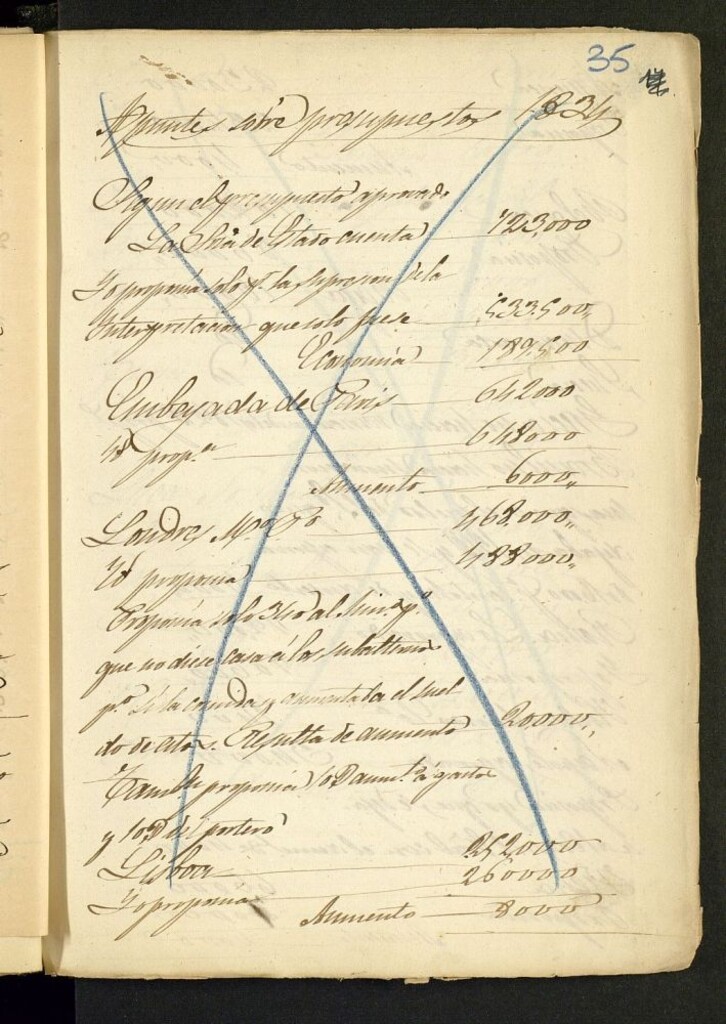 35
Apuntes sobre presupuestos 1834
Segun el presupuesto aprovado
La Sria de Estado cuenta 723,000
Yo proponia solo pr. la supresion de la
Interpretacion que solo fuese 533,500,,
Economia 189,500
Embajada de Paris 642000
Yo prop.n 648000
Aumento 6000,,
Londres 468.000,,
Yo proponia 488000,,
Proponia solo 340 al Min.o p.o
que no diese casa á los subalternos
p.o sí la comida y aumentaba el suel
do de estos. Resulta de aumento 20,000,,
Tambn proponia 10 D aumt.o á gastos
y 10 D del portero
Lisboa 252000
Yo proponia 260000
Aumento 8000